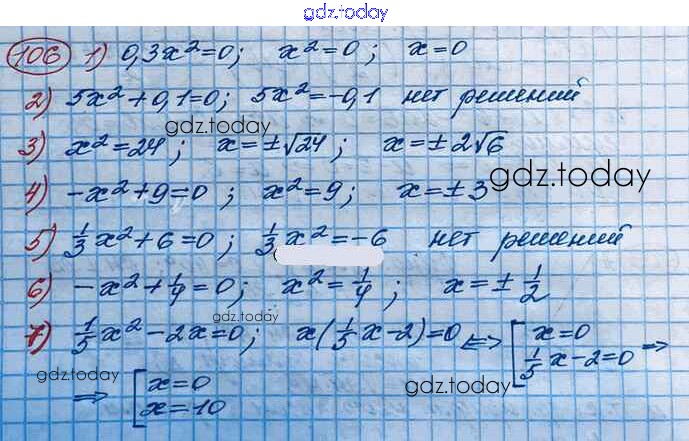 gdz.today
106 1) 0,3x²=0; x²=0; x=0
2) 5x²+0,1=0; 5x²=-0,1 нет решений
gdz.today
3) x²=24; x=±√24; x=±2√6
gdz.today
4) -x²+9=0; x²=9; x=±3
5) 1/3x²+6=0; 1/3x²=-6 нет решений
6) -x²+1/4=0; x²=1/4; x=±1/2
gdz.today
7) 1/5x²-2x=0; x(1/5x-2)=0 <=> [x=0
1/5x-2=0 =>
gdz.today
gdz.today
=> [x=0
x=10